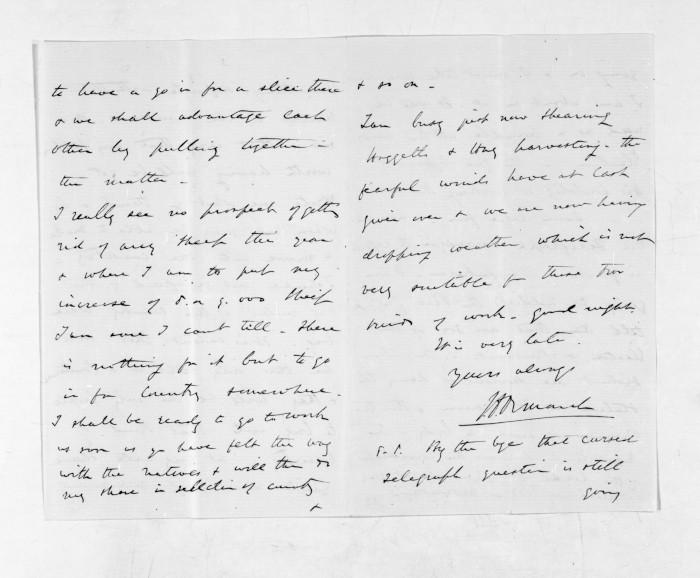 to have a go in for a slice there
& we shall advantage each
other by pulling together in
the matter -
I really see no prospect of getting
rid of any sheep this year
& where I am to put my
increase of 8. or 9.000 sheep
I am sure I cant tell - There
is nothing for it but to go
in for Country somewhere.
I shall be ready to go to work
as soon as have felt the way
with the natives & will then do
my share in selection of country
&
& so on -
I am busy just now shearing
Hoggetts & Hay harvesting - the
fearful winds have at last
given over & we are now having
dropping weather which is not
very suitable for these two
kinds of work - good night
It is very late.
Yours always
J D Ormond
P.S. By the bye that cursed
telegraph question is still
going